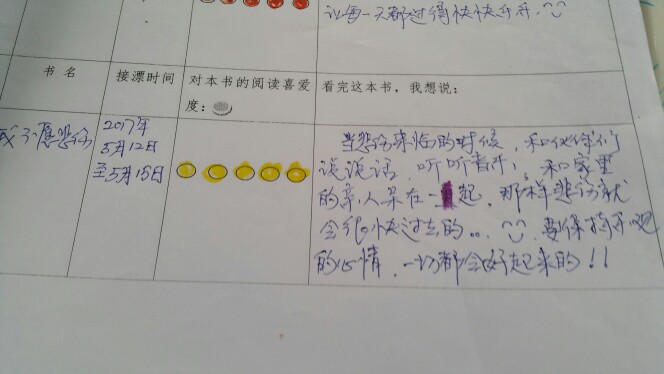 让每一天都过得快快乐乐.
书名 接漂时间 对本书的阅读喜爱度: 看完这本书，我想说:
我不愿悲伤
2017年
5月12日
至5月15日
当悲伤来临的时候，和伙伴们
谈谈话，听听音乐，和家里
的亲人呆在一起，那样悲伤就
会很快过去的... 要保持开心
的心情，一切都会好起来的!!